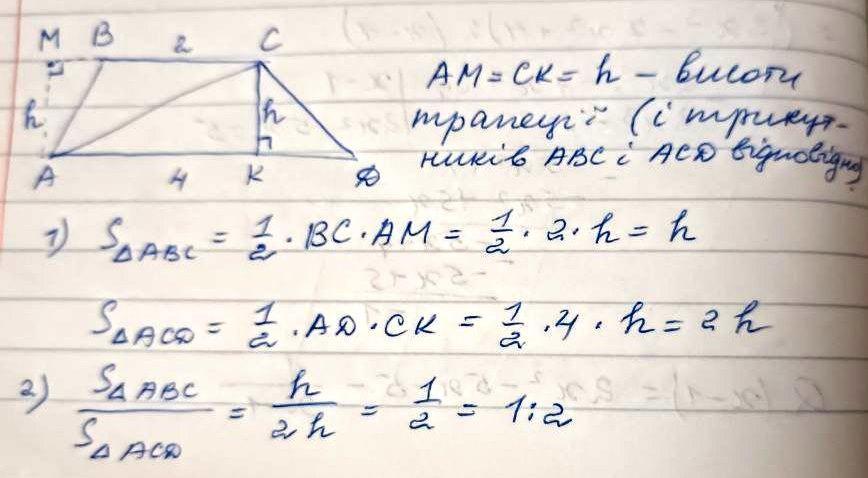 M B 2 C
h h
A 4 K D
AM = CK = h – висоти
трапеції (і трикут-
ників ABC і ACD відповідно)
1) S△ABC = 1/2 · BC · AM = 1/2 · 2 · h = h
S△ACD = 1/2 · AD · CK = 1/2 · 4 · h = 2h
2) S△ABC / S△ACD = h / 2h = 1/2 = 1:2